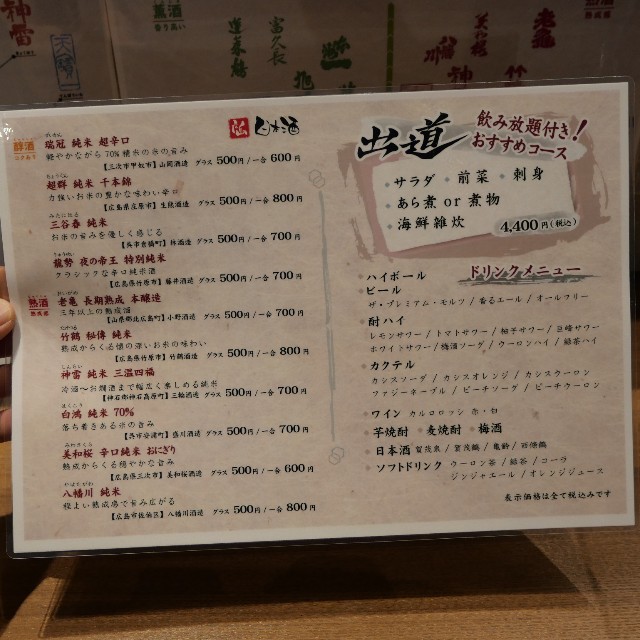 神雷
薫酒
香り高い
富久長
蓬莱鶴
美和桜
八幡川
神
老亀
熟成感
醇酒
コクあり
弘 日本酒
ずいかん
瑞冠 純米 超辛口
軽やかながら70%精米の米の旨み
【三次市甲奴町】山岡酒造 グラス 500円/一合 600円
超群 純米 千本錦
力強いお米の豊かな味わい辛口
【広島県庄原市】生熊酒造 グラス 500円/一合 800円
みたにはる
三谷春 純米
お米の旨みを優しく感じる
【呉市倉橋町】林酒造 グラス 500円/一合 700円
龍勢 夜の帝王 特別純米
クラシックな辛口純米酒
【広島県竹原市】藤井酒造 グラス 500円/一合 700円
熟酒
熟成感
老亀 長期熟成 本醸造
三年以上の熟成酒
【山県郡北広島町】小野酒造 グラス 500円/一合 700円
たけつる
竹鶴 秘傳 純米
熟成からくる懐の深いお米の味わい
【広島県竹原市】竹鶴酒造 グラス 500円/一合 800円
しんらい
神雷 純米 三温四福
冷酒~お燗酒まで幅広く楽しめる純米
【神石郡神石高原町】三輪酒造 グラス 500円/一合 700円
はくこう
白鴻 純米 70%
落ち着きある米の旨み
【呉市安浦町】盛川酒造 グラス 500円/一合 700円
みわさくら
美和桜 辛口純米 おにぎり
熟成からくる穏やかな旨み
【広島県三次市】美和桜酒造 グラス 500円/一合 600円
やはたがわ
八幡川 純米
程よい熟成感で旨み広がる
【広島市佐伯区】八幡川酒造 グラス 500円/一合 800円
出道
飲み放題付き!
おすすめコース
・サラダ ・前菜 ・刺身
・あら煮 or 煮物
・海鮮雑炊
4,400円(税込)
ドリンクメニュー
ハイボール
ビール
ザ・プレミアム・モルツ/香るエール/オールフリー
酎ハイ
レモンサワー/トマトサワー/柚子サワー/巨峰サワー
ホワイトサワー/梅酒ソーダ/ウーロンハイ/緑茶ハイ
カクテル
カシスソーダ/カシスオレンジ/カシスウーロン
ファジーネーブル/ピーチソーダ/ピーチウーロン
ワイン カルロロッシ 赤・白
芋焼酎 ・麦焼酎 ・梅酒
日本酒 賀茂泉/賀茂鶴/亀齢/西條鶴
ソフトドリンク ウーロン茶/緑茶/コーラ
ジンジャエール/オレンジジュース
表示価格は全て税込みです